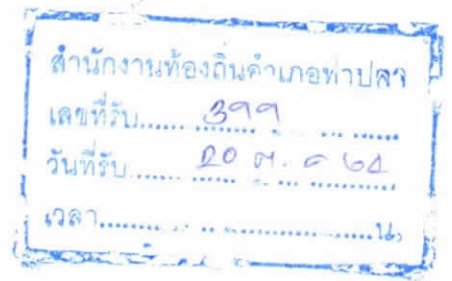 สำนักงานท้องถิ่นอำเภอท่าปลา
เลขที่รับ...... 399 ..............
วันที่รับ...... 20 ต.ค 64
เวลา..............................น.